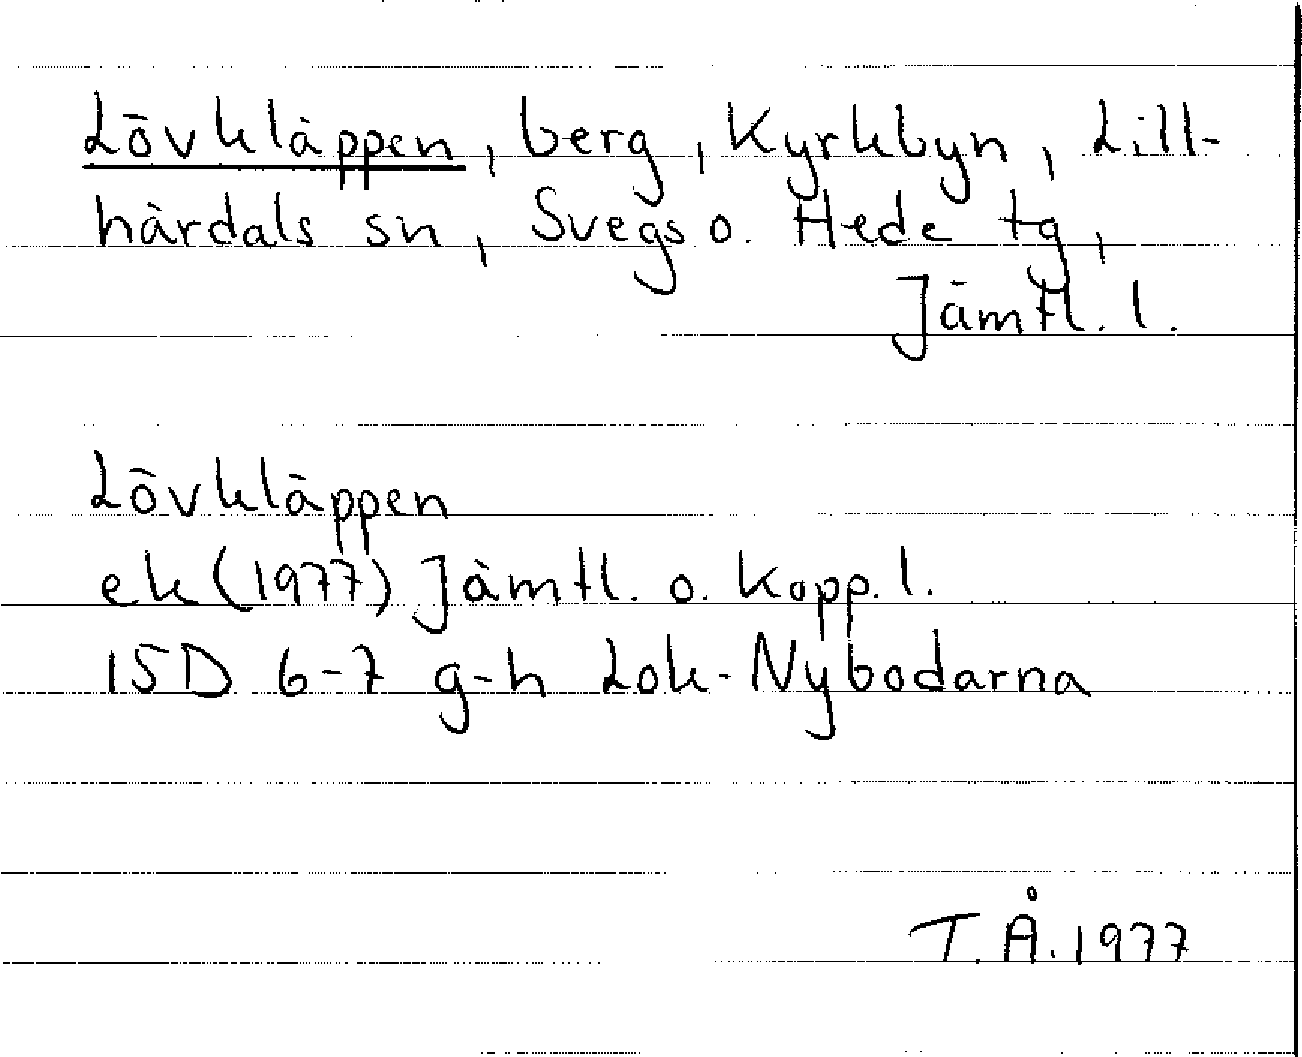 Lövkläppen, berg, Kyrkbyn, Lill-
härdals sn, Svegs o. Hede tg,
Jämtl. l.
Lövkläppen
ek (1977) Jämtl. o. Kopp. l.
15D 6-7 g-h Lok-Nybodarna
T. Å. 1977